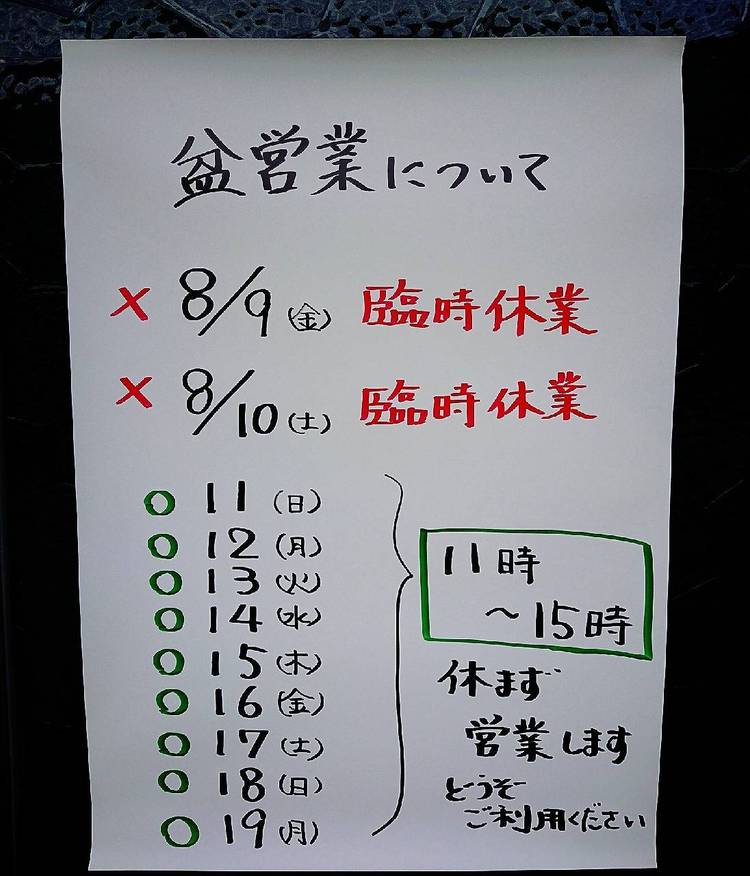 盆営業について
× 8/9(金) 臨時休業
× 8/10(土) 臨時休業
○ 11(日)
○ 12(月)
○ 13(火)
○ 14(水)
○ 15(木)
○ 16(金)
○ 17(土)
○ 18(日)
○ 19(月)
11時
~15時
休まず
営業します
どうぞ
ご利用ください